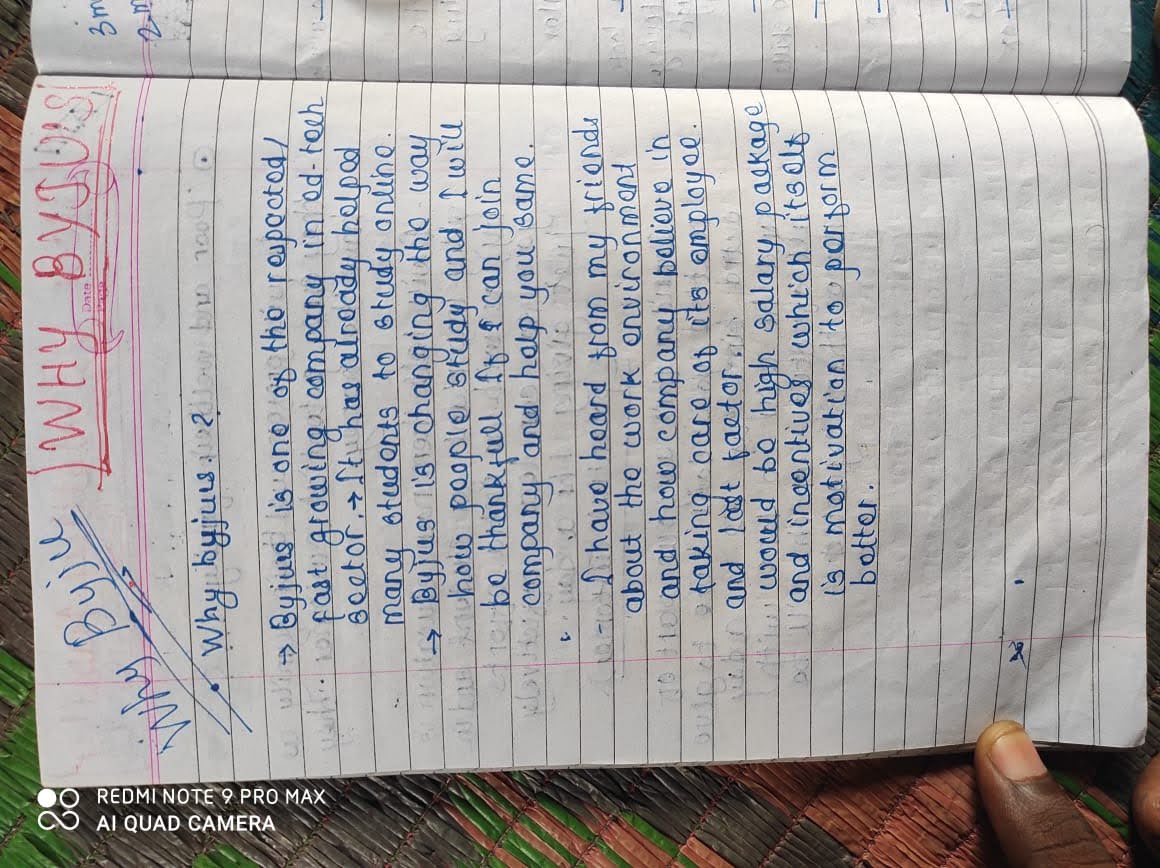 WHY BYJU'S
Why Byju
Date
• Why byjus. ?
→ Byjus is one of the respected/
fast growing company in ed-tech
sector. → It has already helped
many students to study online.
→ Byjus is changing the way
how people study and I will
be thankfull If I can join
company and help you same.
- I have heard from my friends
about the work environment
and how company believe in
taking care of its employee.
and last factor.
would be high salary package
and incentives which itself
is motivation to perform
better.
3m
2m
REDMI NOTE 9 PRO MAX
AI QUAD CAMERA